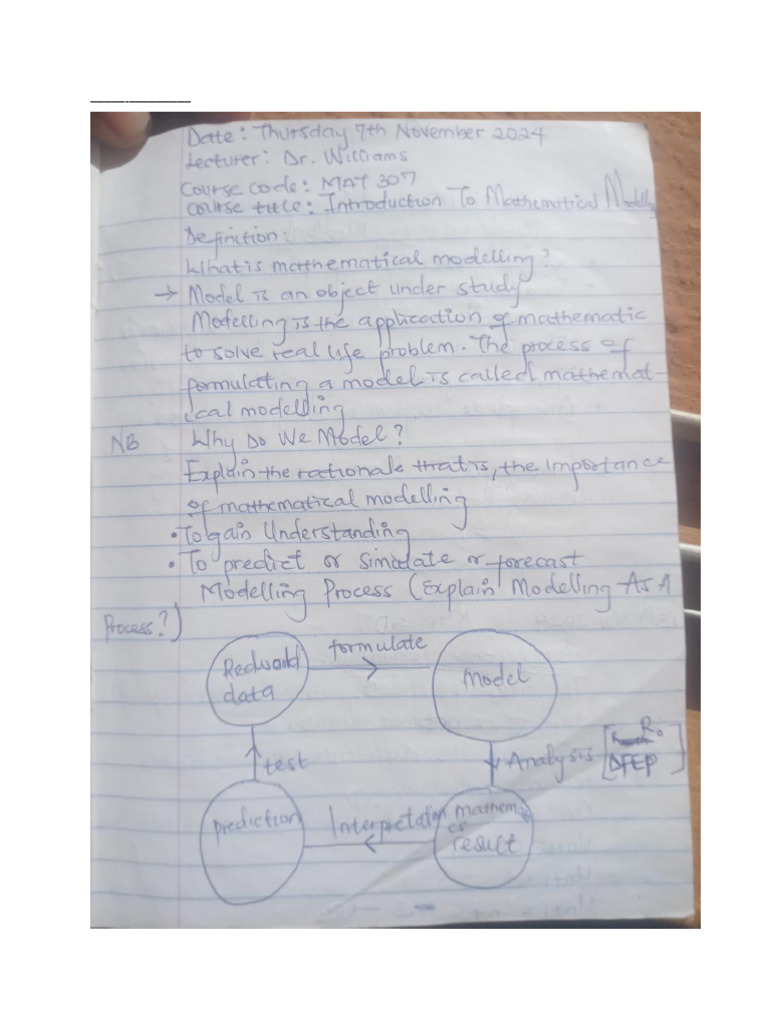 Date: Thursday 7th November 2024
Lecturer: Dr. Williams
Course code: MAT 307
Course title: Introduction To Mathematical Modelling
Definition:
What is mathematical modelling?
→ Model is an object under study
Modelling is the application of mathematic
to solve real life problem. The process of
formulating a model is called mathemat-
ical modelling
NB Why Do We Model?
Explain the rationale that is, the importance
of mathematical modelling
• To gain Understanding
• To predict or simulate or forecast
Modelling Process (Explain Modelling As A
Process?)
formulate
Realworld
data
Model
test
Analysis
R₀
DFEP
prediction
Interpretation
mathemati
cs
result